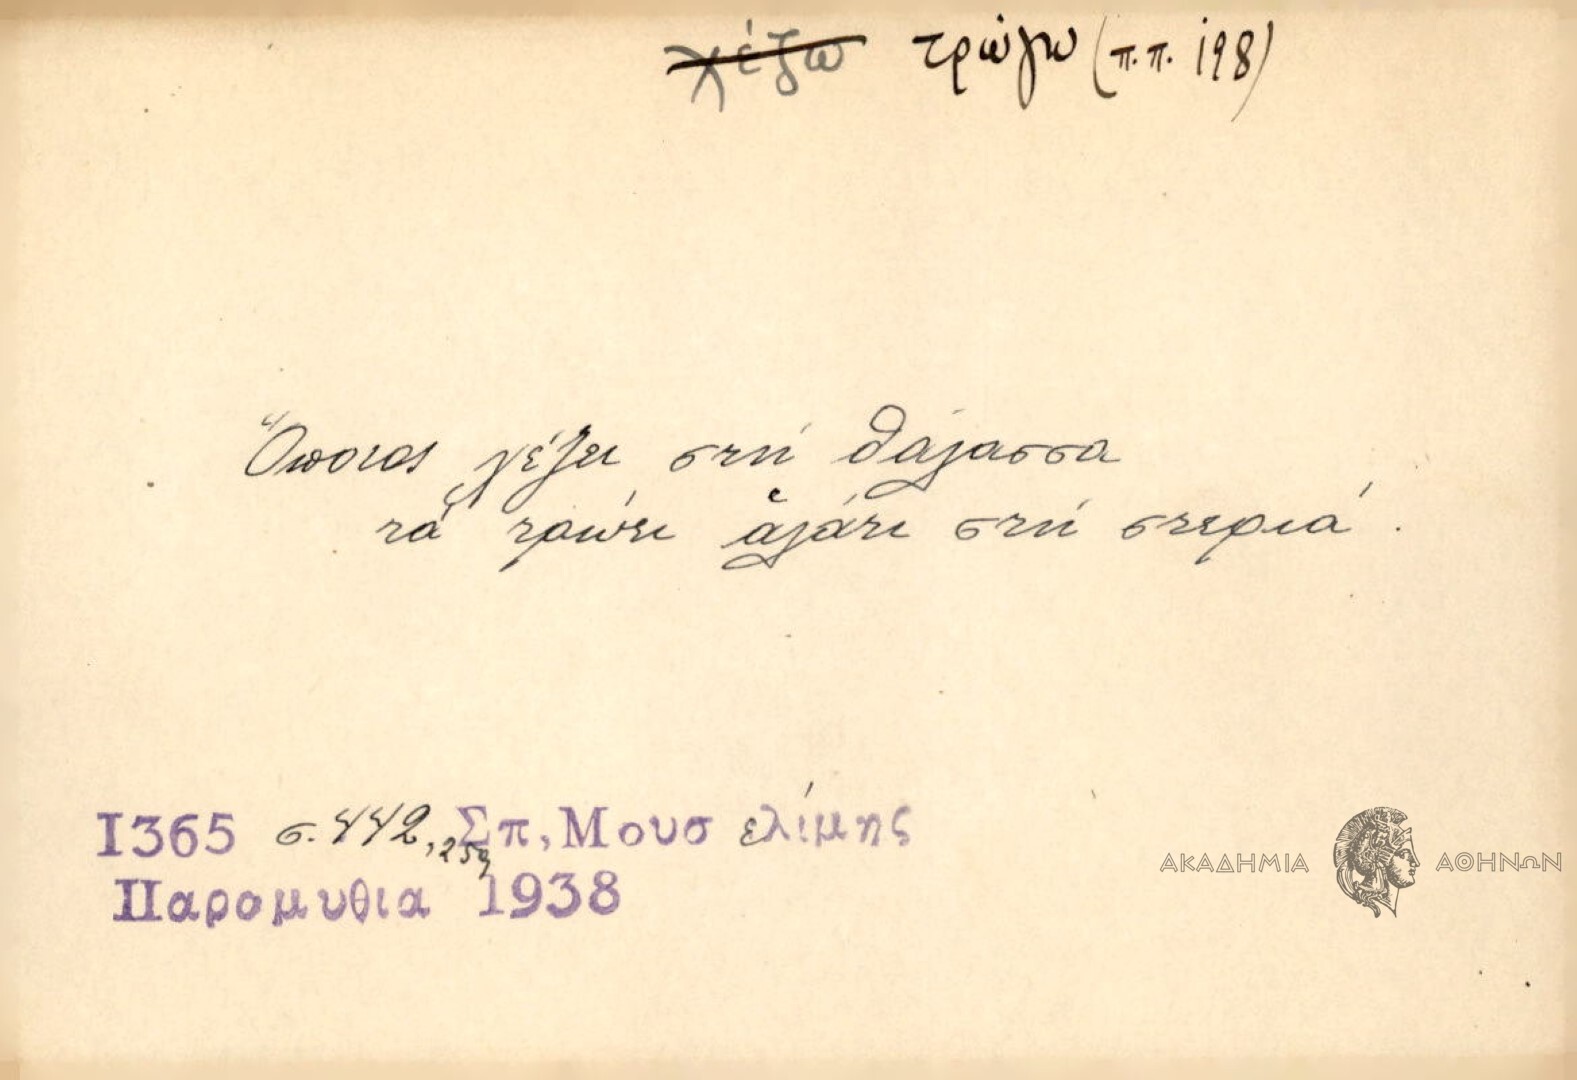 χέζω τρώγω (π.π. 198)
Ὅποιος χέζει στὴ θάλασσα
τὰ τρώει ἁλάτι στὴ στεριά.
Ι365 σ. 442, 259, Σπ, Μουσελίμης
Παραμυθια 1938
ΑΚΑΔΗΜΙΑ ΑΘΗΝΩΝ